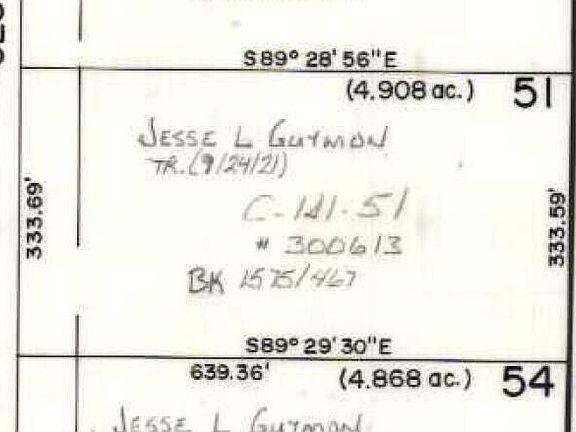 S89° 28' 56" E
(4.908 ac.) 51
JESSE L GUYMON
TR. (9/24/21)
C-141-51
# 300613
BK 1575/467
333.69'
333.59'
S89° 29' 30" E
639.36' (4.868 ac.) 54
JESSE L GUYMON